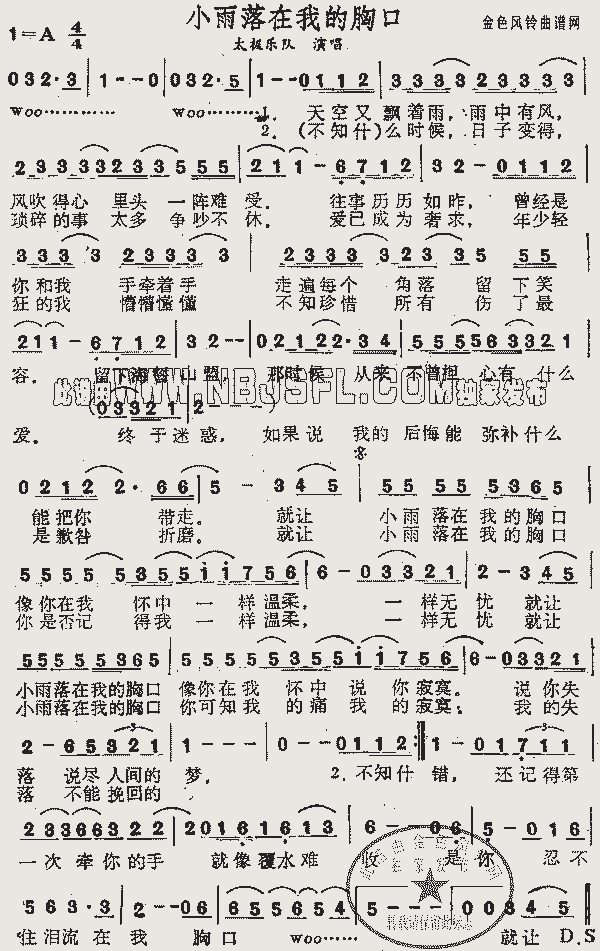 小雨落在我的胸口
1=A 4/4
金色风铃曲谱网
太极乐队 演唱
032·3 | 1--0 | 032·5 | 1--0112 | 3333 33323
woo………… woo………… 1. 天空又 飘着雨，雨中有风，
2. (不知什)么时候，日子变得，
2333323355 5 | 211-6712 | 32-0112
风吹得心 里头 一阵难 受。 往事历历如昨， 曾经是
琐碎的事 太多 争吵不 休。 爱已成为奢求， 年少轻
333 3 2333 3 | 2333 323 35 55
你和我 手牵着手 走遍每个 角落 留 下笑
狂的我 懵懵懂懂 不知珍惜 所有 伤 了最
211-6712 | 32-- | 02122·34 | 555556 3321
容。 留下海誓山盟， 那时候 从来 不曾担 心有 什么
(03321 | 2---)
爱。 终于迷惑， 如果说 我的后悔能 弥补什么
0212 2·66 | 5-345 | 55 55 5365
能把你 带走。 就让 小雨 落在 我的胸口
是歉咎 折磨。 就让 小雨 落在 我的胸口
5555 5355 11756 | 6-03321 | 2-345
像你在我 怀中 一 样温柔， 一样无忧 就让
你是否记 得我 一 样温柔， 一样无忧 就让
55555365 | 5555 5355 11756 | 6-03321
小雨落在我的胸口 像你在我 怀中 说 你寂寞。 说你失
小雨落在我的胸口 你可知我 的痛 我 的寂寞； 我的失
2-65321 | 1--- | 0--0112 :‖ 1-01711
落 说尽人间的 梦， 2. 不知什 错， 还记得第
落 不能挽回的
23366322 | 20161613 | 6--06 | 5-016
一次 牵你的手 就像覆水难 收 是你 忍不
563·3· | 2-06 | 6555655 | 5--- | 00345 |
住泪流在 我 胸口 woo……… 就让 D.S